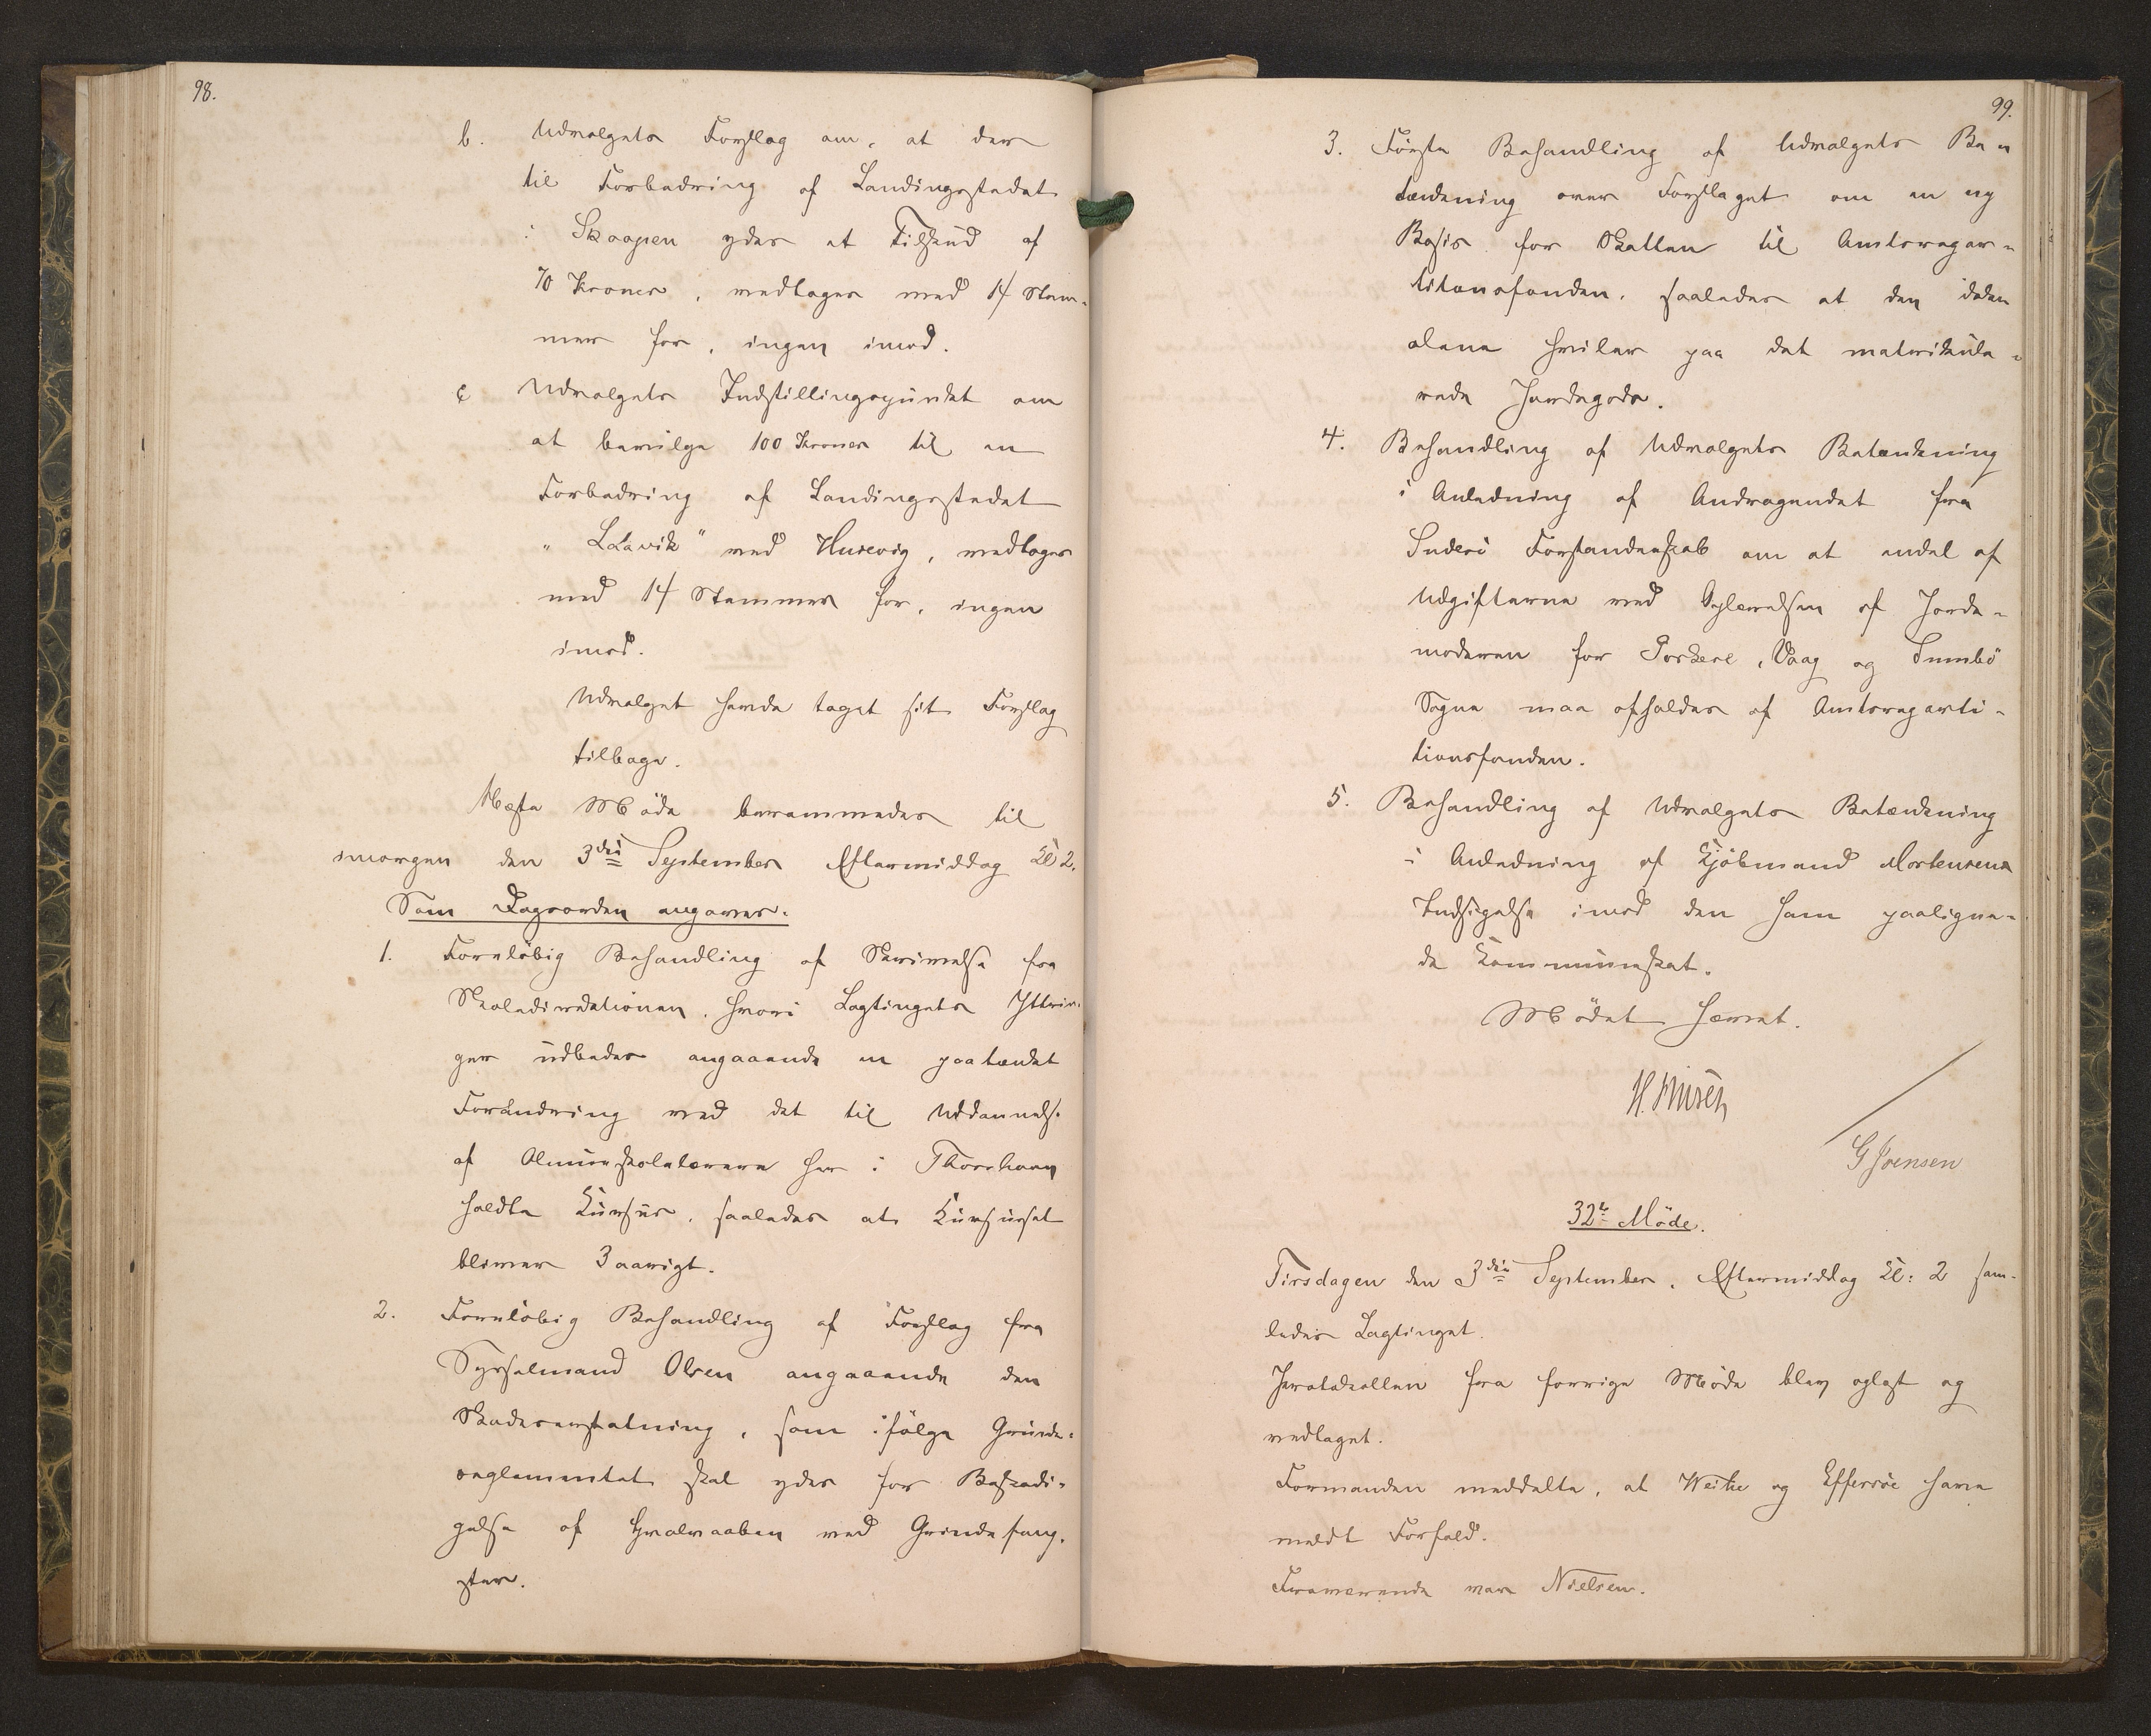 98.
b. Udvalgets Forslag om, at der
til Forbedring af Landingsstedet
i Skaapen ydes et Tilskud af
70 Kroner, vedtages med 14 Stem-
mer for, ingen imod.
c Udvalgets Indstillingspunkt om
at bevilge 100 Kroner til en
Forbedring af Landingsstedet
" " ved Husevig, vedtages
med 14 Stemmer for, ingen
imod.
Udvalget havde taget sit Forslag
tilbage.
Næste Möde berammedes til
imorgen den 3die September Eftermiddag Kl 2.
Som Dagsorden angaves:
1. Forelöbig Behandling af Skrivelse fra
Skoledirektionen, hvori Lagtingets Yttrin-
ger udbedes angaaende en paatænkt
Forandring ved det til Uddannelse
af Almueskolelærere her i Thorshavn
holdte Kursus, saaledes at Kursuset
bliver 3aarigt.
2. Forelöbig Behandling af Forslag fra
Sysselmand Olsen angaaende den
Skadeserstatning, som ifölge Grinde-
reglementet skal ydes for Beskadi-
gelse af Hvalvaaben ved Grindefang-
ster.
99.
3. Förste Behandling af Udvalgets Be=
tænkning over Forslaget om en ny
Basis for Skatten til Amtsrepar=
titionsfonden, saaledes at den ikke
alene hviler paa det matrikule=
rede Jordegods.
4. Behandling af Udvalgets Betænkning
i Anledning af Andragendet fra
Suderö Forstanderskab om at endel af
Udgifterne ved Oplevelsen af Jorde=
moderen for Porkere, Vaag og Sumbö
Sogne maa afholdes af Amtsreparti=
tionsfonden.
5. Behandling af Udvalgets Betænkning
i Anledning af Kjöbmand Mortensens
Indsigelse imod den ham paaligne=
de Kommuneskat.
Mödet hævet.
G Joensen
32te Möde.
Tirsdagen den 3die September, Eftermiddag Kl: 2 sam-
ledes Lagtinget.
Protokollen fra forrige Möde blev oplæst og
vedtaget.
Formanden meddelte, at Weihe og Effersöe have
meldt Forfald.
Fraværende var Nielsen.